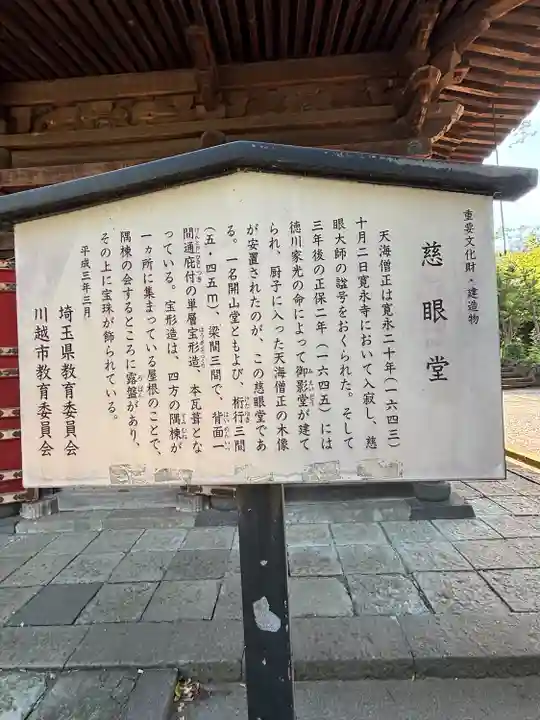 重要文化財・建造物
慈眼堂
天海僧正は寛永二十年（一六四三）
十月二日寛永寺において入寂し、慈
眼大師の諡号をおくられた。そして
三年後の正保二年（一六四五）には
徳川家光の命によって御影堂が建て
られ、厨子に入った天海僧正の木像
が安置されたのが、この慈眼堂であ
る。一名開山堂ともよび、桁行三間
（五・四五ｍ）、梁間三間で、背面一
間通庇付の単層宝形造、本瓦葺とな
っている。宝形造は、四方の隅棟が
一ヵ所に集まっている屋根のことで、
隅棟の会するところに露盤があり、
その上に宝珠が飾られている。
平成三年三月
埼玉県教育委員会
川越市教育委員会